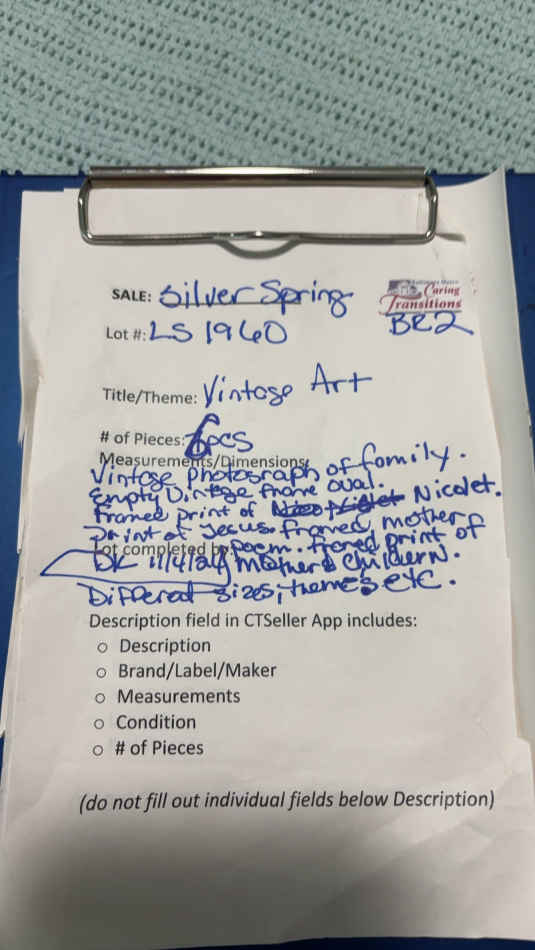 SALE: Silver Spring
Caring
Transitions
BR2
Lot #: LS 1960
Title/Theme: Vintage Art
# of Pieces: 6pcs
Measurements/Dimensions:
Vintage photograph of family.
Empty Vintage frame oval.
Framed print of Nicolet.
print of Jesus. framed mother
Lot completed by: poem. framed print of
DK 11/4/24 mother & Childern.
Different sizes, themes etc.
Description field in CTSeller App includes:
o Description
o Brand/Label/Maker
o Measurements
o Condition
o # of Pieces
(do not fill out individual fields below Description)